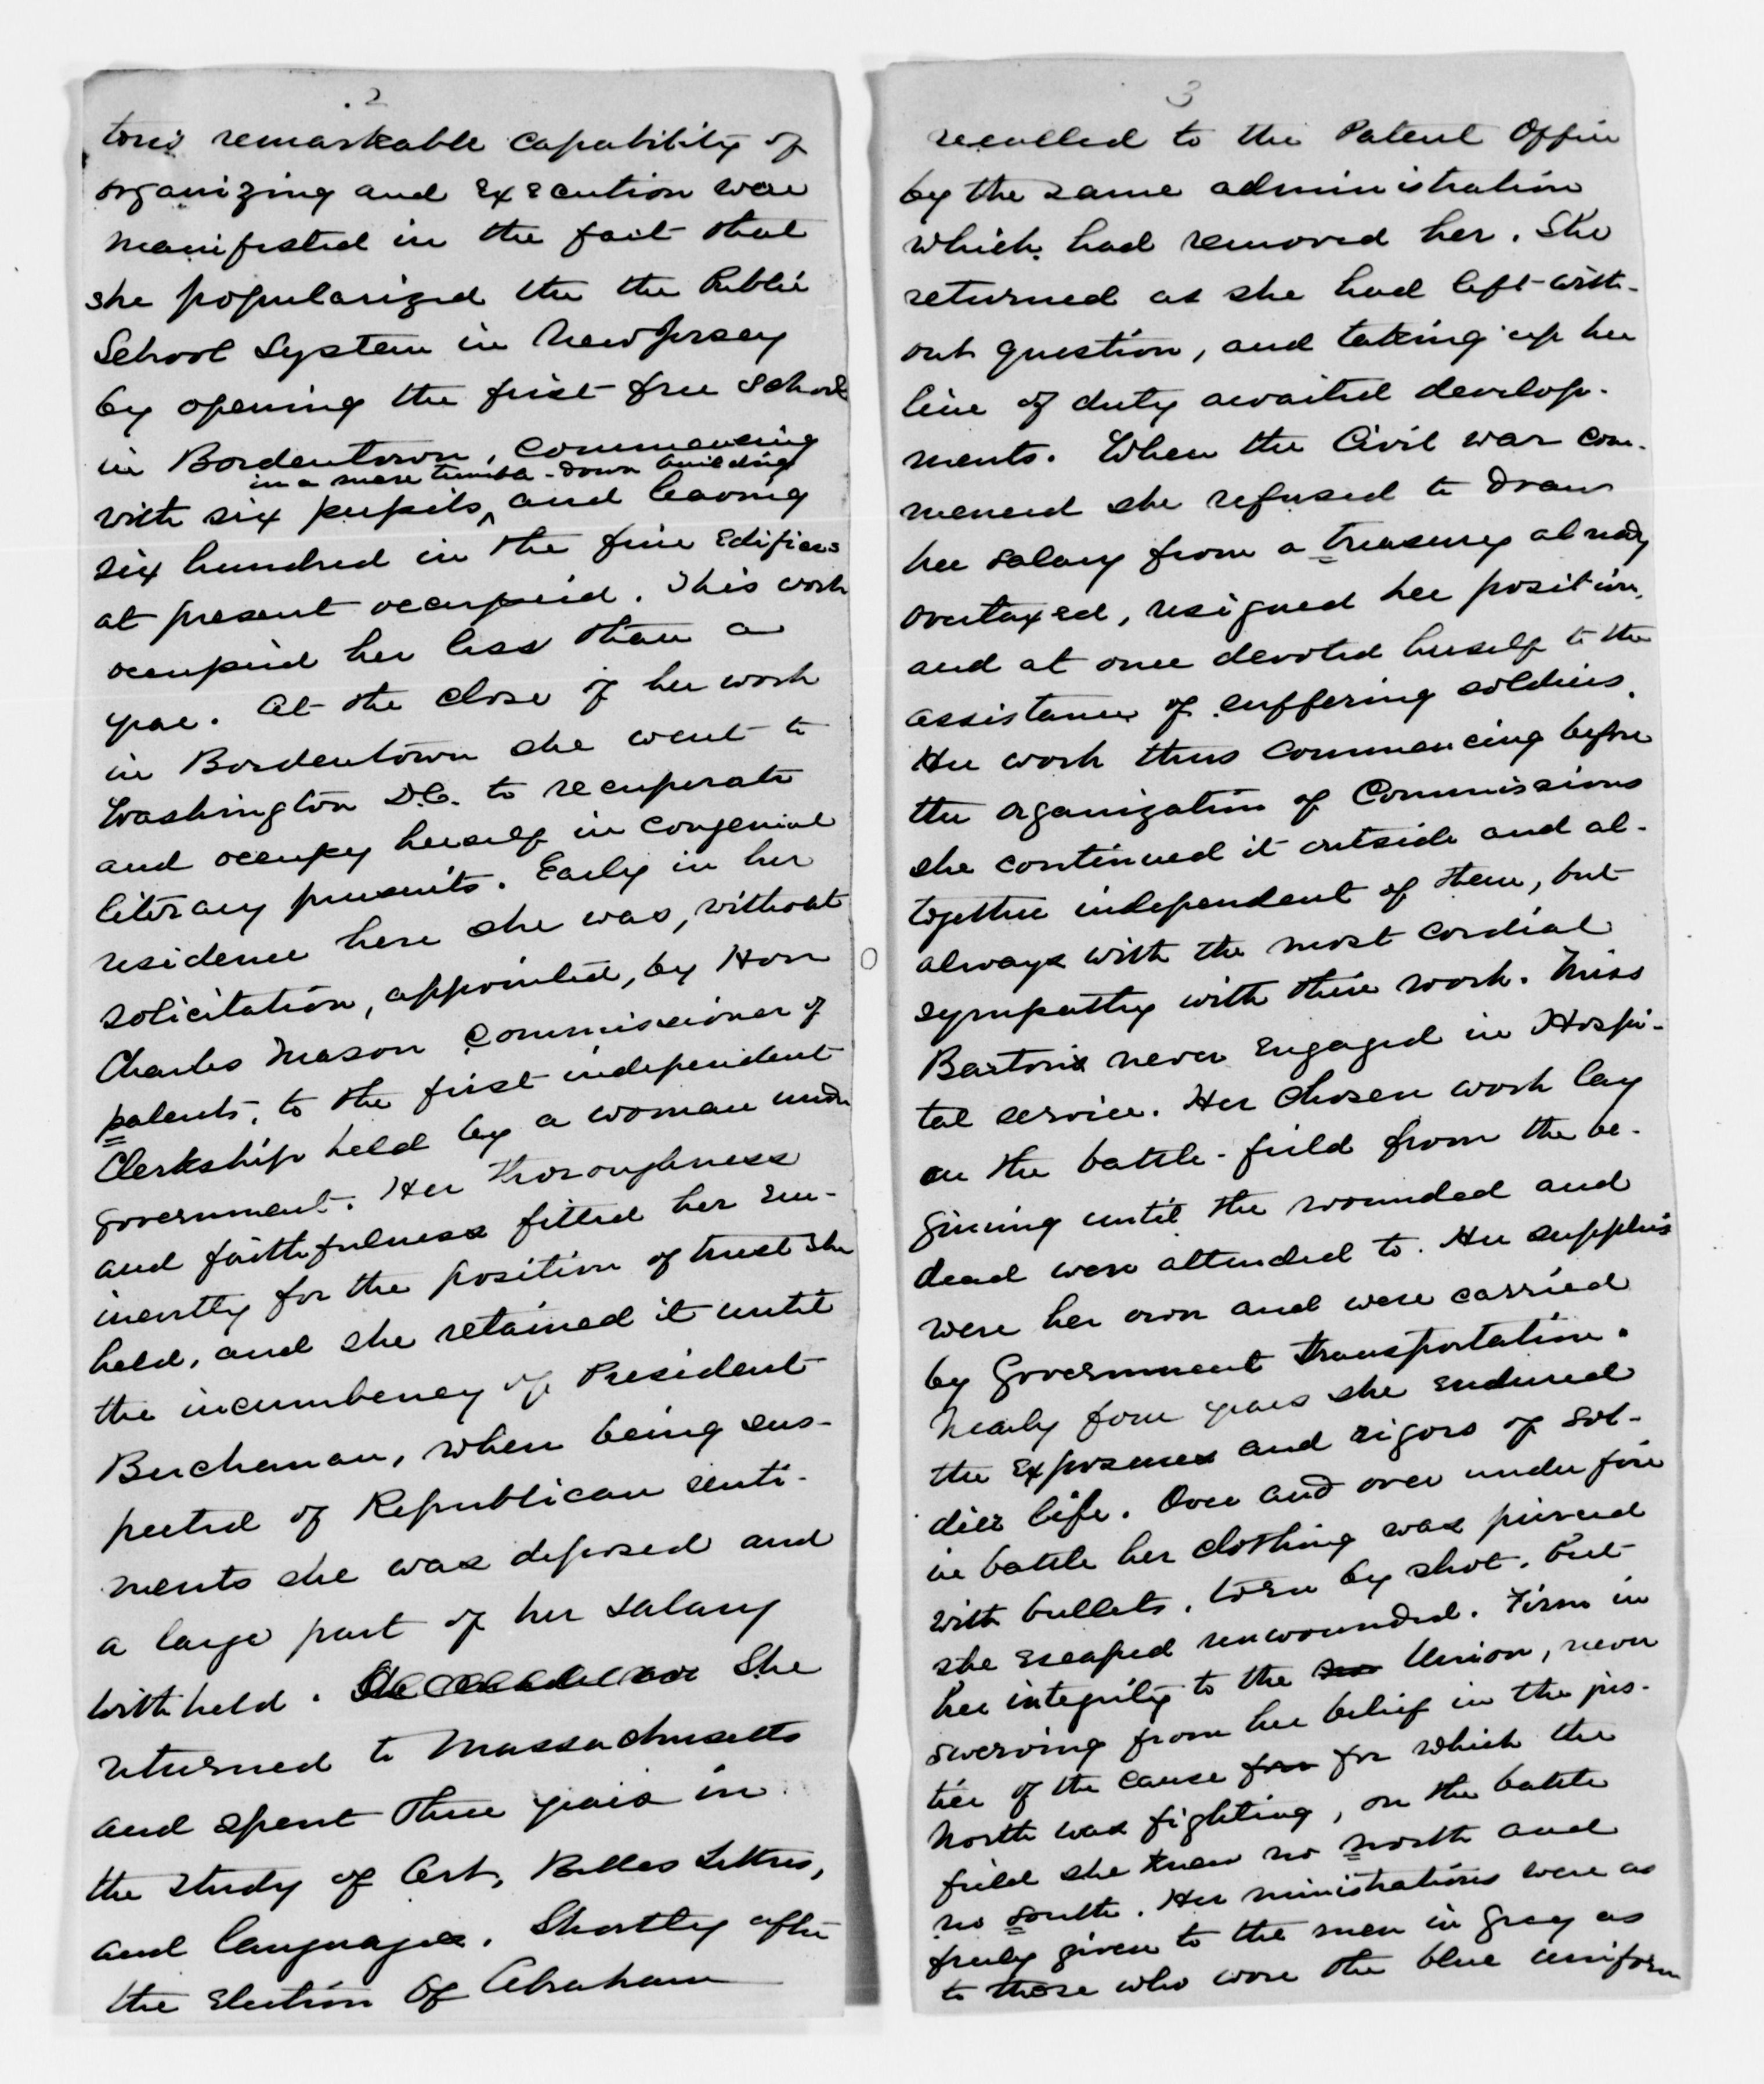 2
ton's remarkable capability of
organizing and execution were
manifested in the fact that
she popularized the the Public
School System in New Jersey
by opening the first free School
in Bordentown, commencing
in a mere tumble-down building
with six pupils, and leaving
six hundred in the fine Edifices
at present occupied. This work
occupied her less than a
year. At the close of her work
in Bordentown she went to
Washington D.C. to recuperate
and occupy herself in congenial
literary pursuits. Early in her
residence here she was, without
solicitation, appointed, by Hon
Charles Mason Commissioner of
patents, to the first independent
Clerkship held by a woman under
government. Her thoroughness
and faithfulness fitted her em-
inently for the position of trust she
held, and she retained it until
the incumbency of President
Buchanan, when being sus-
pected of Republican senti-
ments she was deposed and
a large part of her salary
withheld. She
returned to Massachusetts
and spent three years in
the study of Art, Belles Lettres,
and languages. Shortly after
the Election of Abraham
3
recalled to the Patent Office
by the same administration
which had removed her. She
returned as she had left-with-
out question, and taking up her
line of duty awaited develop-
ments. When the Civil war com-
menced she refused to draw
her salary from a treasury already
overtaxed, resigned her position,
and at once devoted herself to the
assistance of suffering soldiers.
Her work thus commencing before
the organization of Commissions
she continued it outside and al-
together independent of them, but
always with the most cordial
sympathy with their work. Miss
Barton never engaged in Hospi-
tal service. Her chosen work lay
on the battle-field from the be-
gining until the wounded and
dead were attended to. Her supplies
were her own and were carried
by Government transportation.
Nearly four years she endured
the exposures and rigors of sol-
dier life. Over and over under fire
in battle her clothing was pierced
with bullets, torn by shot, but
she escaped unwounded. Firm in
her integrity to the Union, never
swerving from her belief in the jus-
tice of the cause for which the
North was fighting, on the battle
field she knew no north and
no south. Her ministrations were as
freely given to the men in gray as
to those who wore the blue uniform